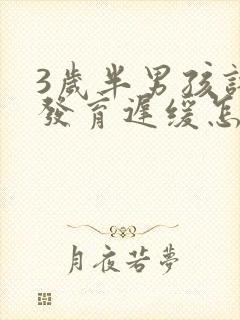 3歲半男孩語
發育遲緩怎
月夜若夢